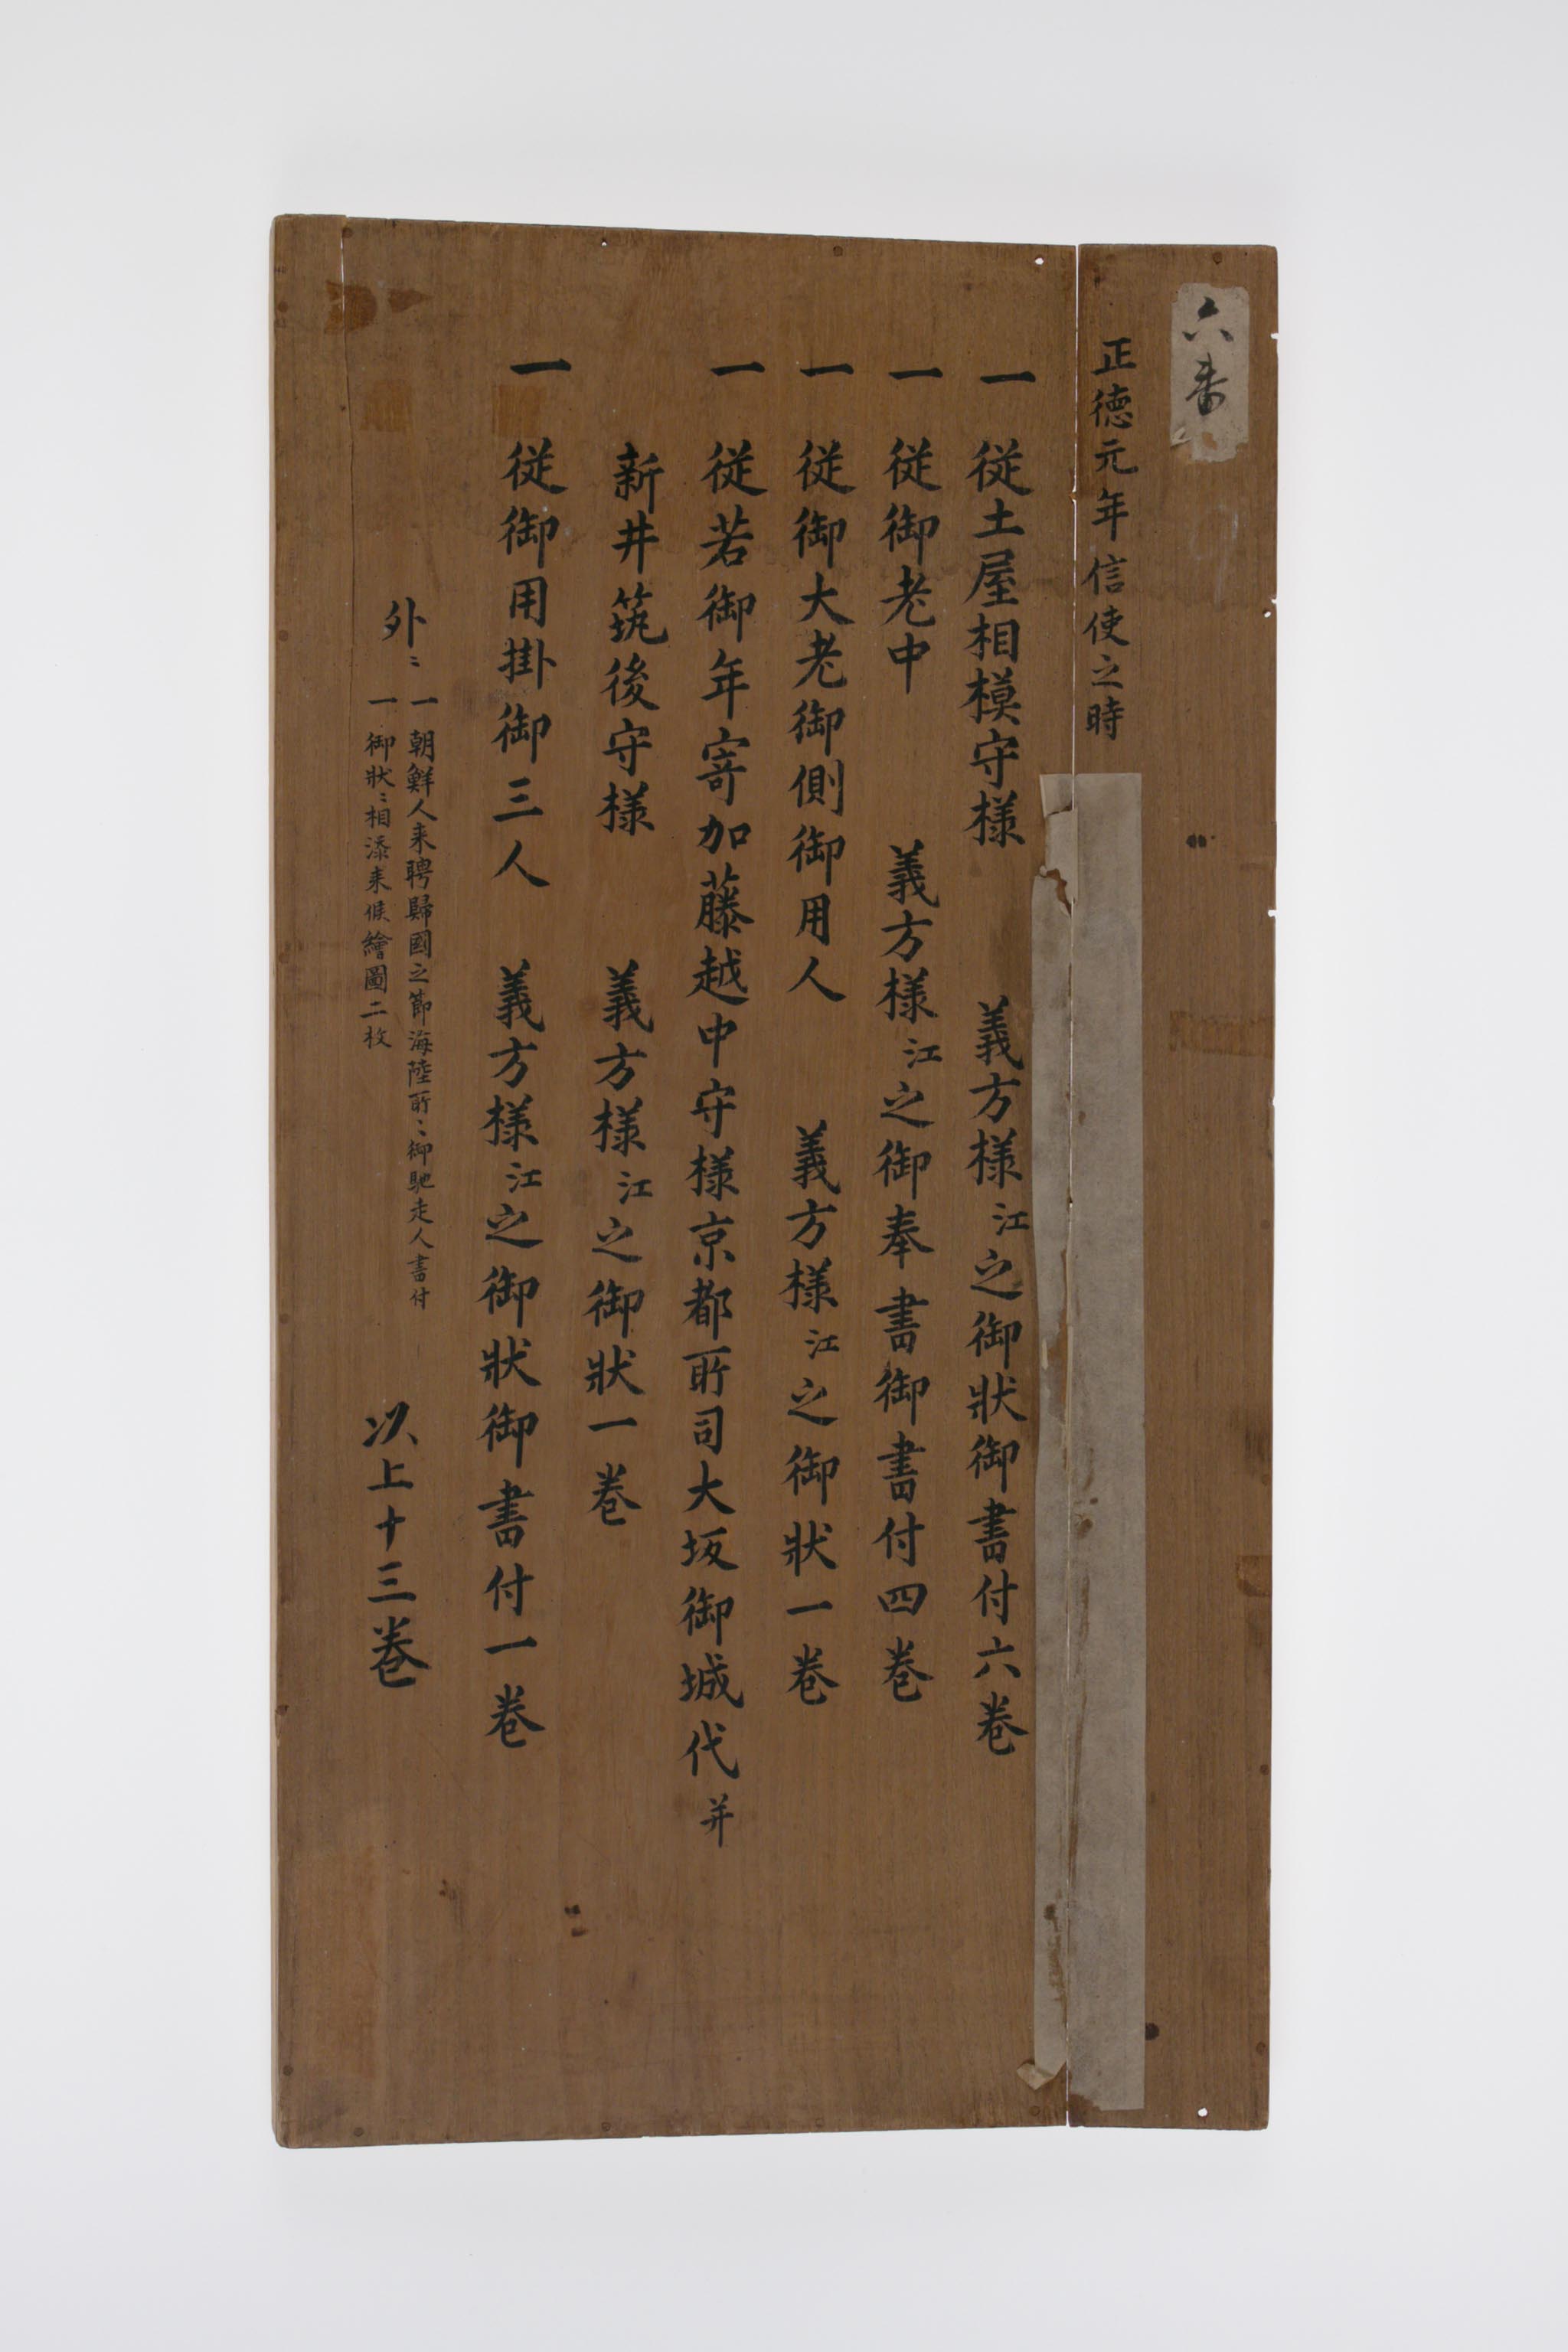 六番
正徳元年信使之時
一 従土屋相模守様 義方様江之御狀御書付六巻
一 従御老中 義方様江之御奉書御書付四巻
一 従御大老御側御用人 義方様江之御狀一巻
一 従若御年寄加藤越中守様京都所司大坂御城代并
新井筑後守様 義方様江之御狀一巻
一 従御用掛御三人 義方様江之御狀御書付一巻
外ニ
一 朝鮮人来聘歸國之節海陸所ニ御馳走人書付
一 御狀ニ相添来候繪圖二枚
以上十三巻